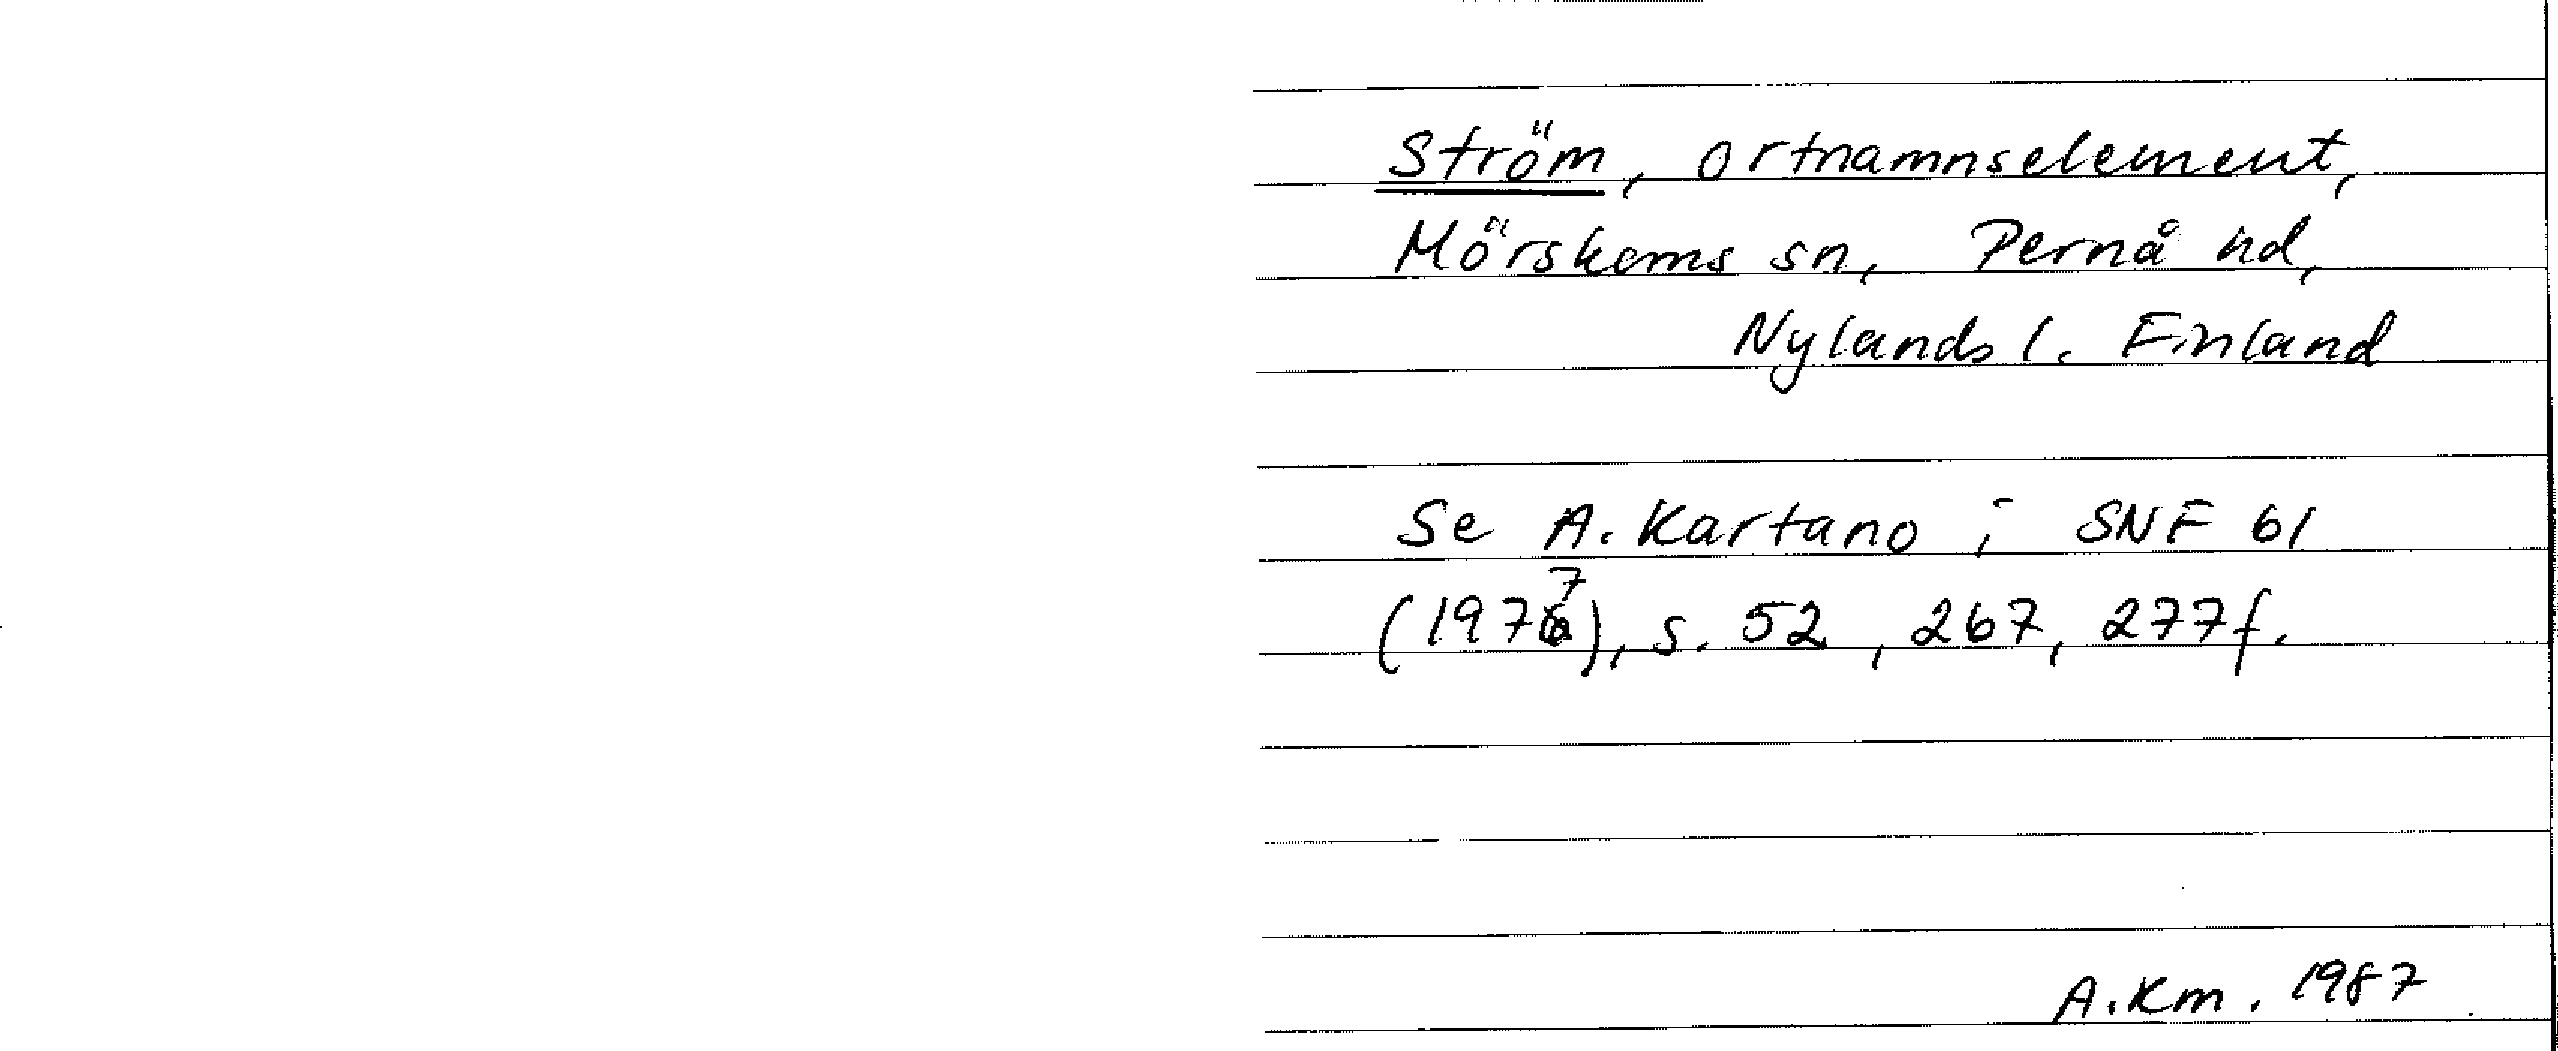 Ström, ortnamnselement,
Mörskoms sn, Pernå hd,
Nylands l. Finland
Se A. Kartano i SNF 61
(1977), s. 52, 267, 277f.
A.Km. 1987